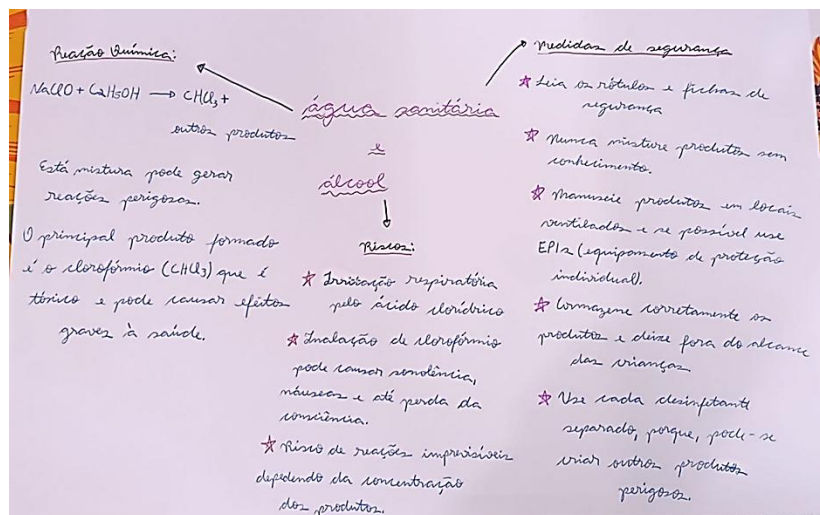 Reação Química:
NaClO + C2H5OH → CHCl3 +
outros produtos
Está mistura pode gerar
reações perigosas.
O principal produto formado
é o clorofórmio (CHCl3) que é
tóxico e pode causar efeitos
graves à saúde.
água sanitária
e
álcool
Riscos:
☆ Irritação respiratória
pelo ácido clorídrico
☆ Inalação de clorofórmio
pode causar sonolência,
náuseas e até perda da
consciência.
☆ Risco de reações imprevisíveis
depedendo da concentração
dos produtos.
Medidas de segurança
☆ Leia os rótulos e fichas de
segurança
☆ Nunca misture produtos sem
conhecimento.
☆ Manuseie produtos em locais
ventilados e se possível use
EPIs (equipamento de proteção
individual).
☆ Armazene corretamente os
produtos e deixe fora do alcance
das crianças
☆ Use cada desinfetante
separado, porque, pode-se
criar outros produtos
perigosos.